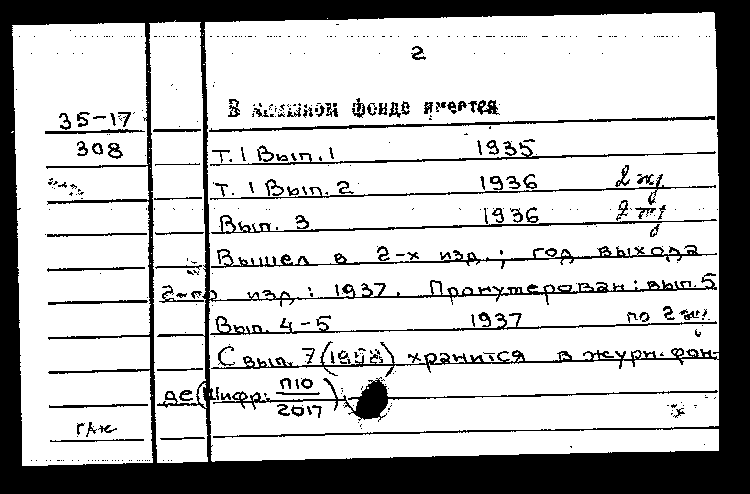 2
В книжном фонде имеется
35-17
308
Т. 1 Вып. 1 1935
Т. 1 Вып. 2 1936 2 экз.
Вып. 3 1936 2 экз.
Вышел в 2-х изд.; год выхода
2-го изд.: 1937. Пронумерован: вып. 5
Вып. 4-5 1937 по 2 экз.
С вып. 7 (1958) хранится в журн. фон-
де (Шифр: П10/2017)